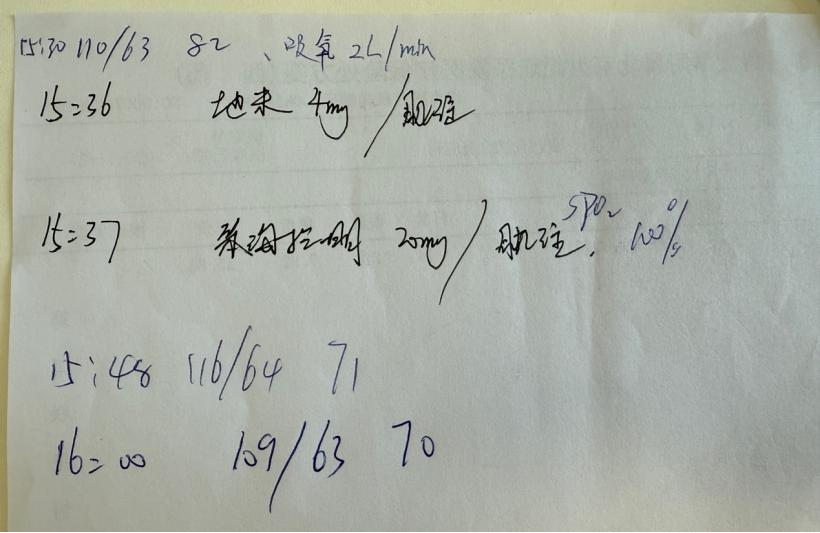 15:30 110/63 82、吸氧 2L/min
15:36 地米 4mg/肌注
15:37 苯海拉明 20mg/肌注. SPO₂ 100%
15:48 116/64 71
16:00 109/63 70